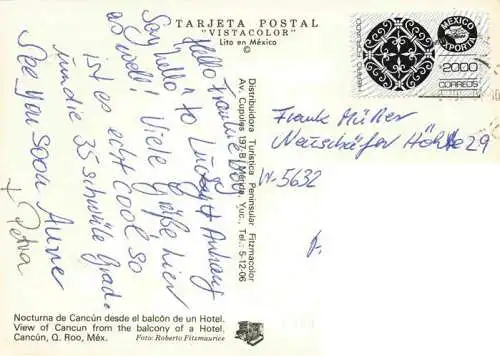 TARJETA POSTAL
"VISTACOLOR"
Lito en México
©
Hello Frankie boy
Say "hello" to Ludgy + Anhang
as well! Viele Grüße hier
ist es echt cool so
um die 35 schwüle Grad.
See you soon
+ Petra
Distribuidora Turistica Peninsular Fitzmacolor
Av. Cupules 197-B Mérida, Yuc., Tel.: 5-12-06
HIERRO FORJADO
MEXICO
EXPORTA
2000
CORREOS
Frank Müller
Neuschäfer Höhle 29
W-5632
Nocturna de Cancún desde el balcón de un Hotel.
View of Cancun from the balcony of a Hotel.
Cancún, Q. Roo, Méx.
Foto: Roberto Fitzmaurice